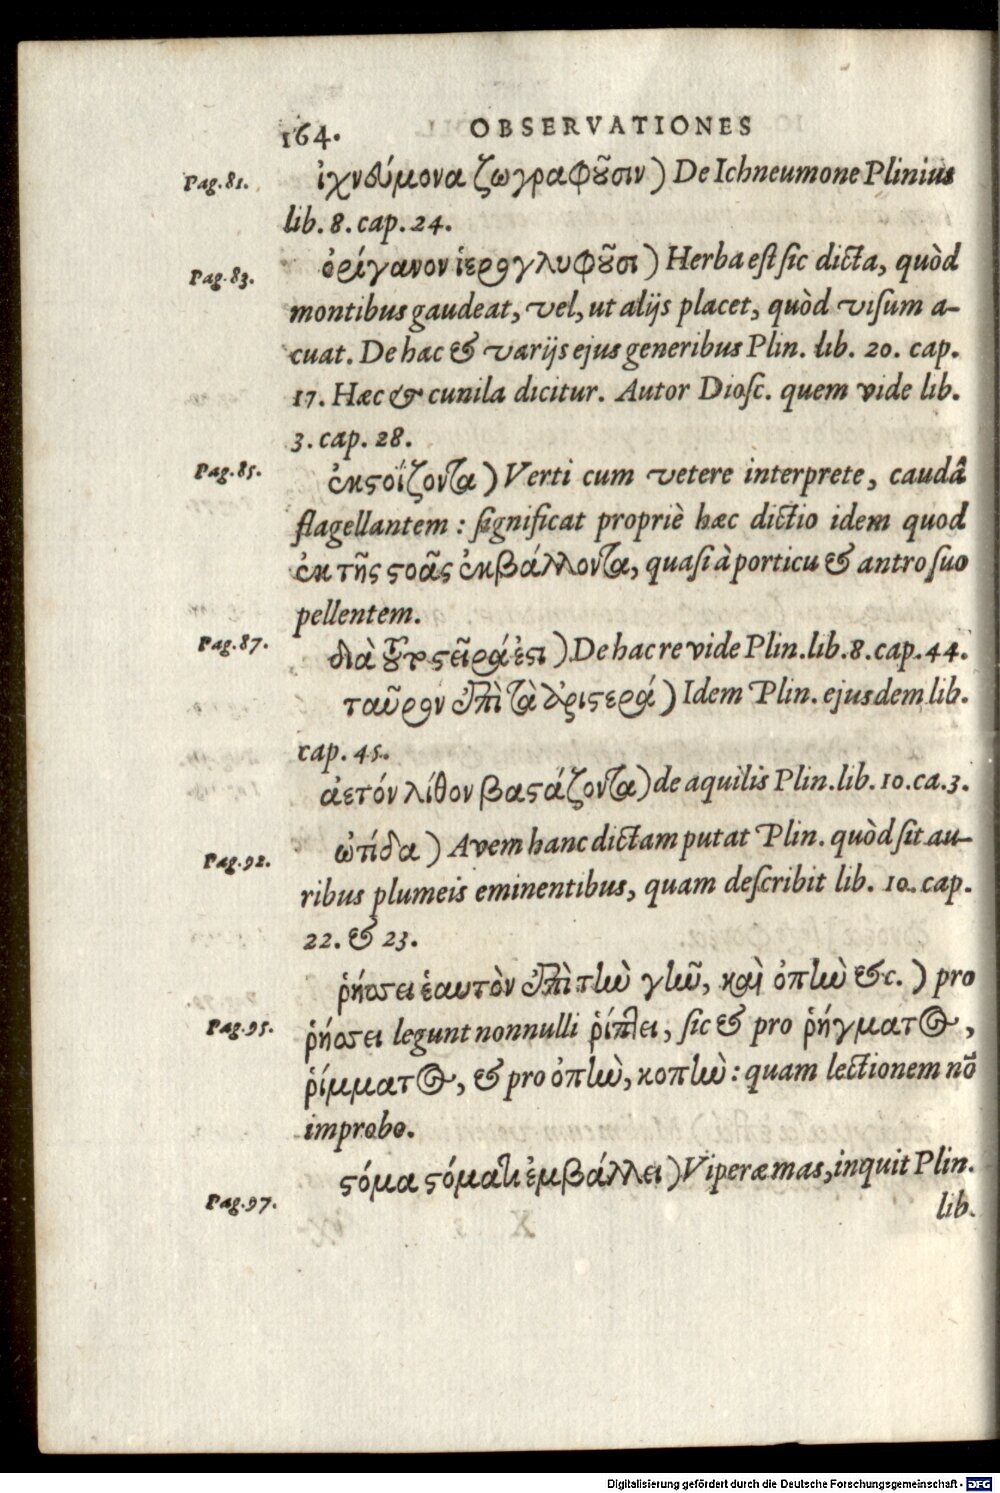 164. OBSERVATIONES
Pag. 81. ἰχνεύμονα ζωγραφοῦσιν) De Ichneumone Plinius
lib. 8. cap. 24.
Pag. 83. ὀρίγανον ἱερογλυφοῦσι) Herba est sic dicta, quòd
montibus gaudeat, vel, ut alijs placet, quòd visum a-
cuat. De hac & varijs ejus generibus Plin. lib. 20. cap.
17. Hæc & cunila dicitur. Autor Diosc. quem vide lib.
3. cap. 28.
Pag. 85. ἐκστοΐζοντα) Verti cum vetere interprete, caudâ
flagellantem: significat propriè hæc dictio idem quod
ἐκ τῆς στοᾶς ἐκβάλλοντα, quasi à porticu & antro suo
pellentem.
Pag. 87. διὰ) De hac re vide Plin. lib. 8. cap. 44.
ταῦρον ἐπὶ τὰ ἀριστερά) Idem Plin. ejusdem lib.
cap. 45.
ἀετόν λίθον βαστάζοντα) de aquilis Plin. lib. 10. ca. 3.
Pag. 92. ὠτίδα) Avem hanc dictam putat Plin. quòd sit au-
ribus plumeis eminentibus, quam describit lib. 10. cap.
22. & 23.
ῥήσσει ἑαυτὸν ἐπὶ τὴν γῆν, καὶ ὀπὴν &c.) pro
Pag. 95. ῥήσσει legunt nonnulli ῥίπτει, sic & pro ῥήγματος,
ῥίμματος, & pro ὀπὴν, κοπὴν: quam lectionem nō
improbo.
στόμα στόματι ἐμβάλλει) Viperæ mas, inquit Plin.
Pag. 97. lib.
Digitalisierung gefördert durch die Deutsche Forschungsgemeinschaft - DFG